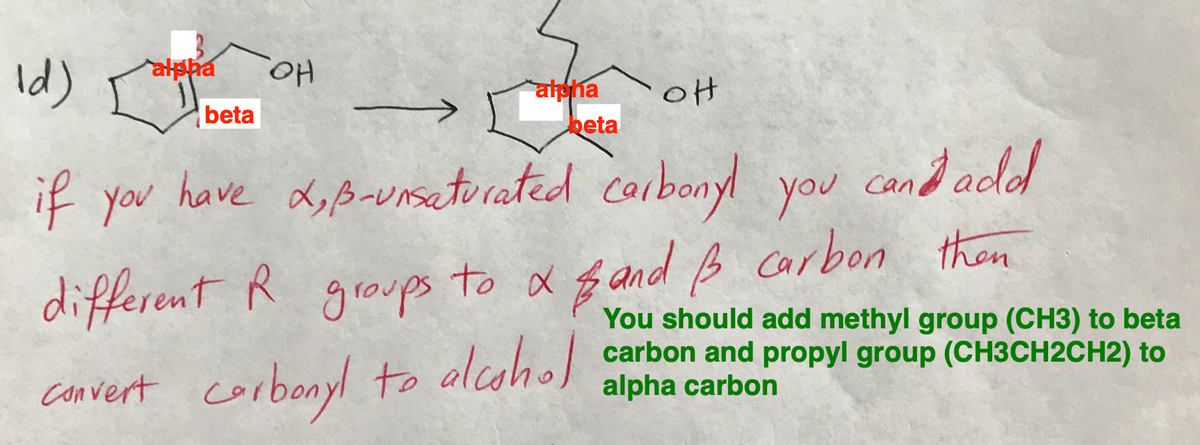 1d)
3
alpha
OH
beta
alpha
OH
beta
if you have α,β-unsaturated carbonyl you can add
different R groups to α and β carbon then
You should add methyl group (CH3) to beta
carbon and propyl group (CH3CH2CH2) to
alpha carbon
convert carbonyl to alcohol